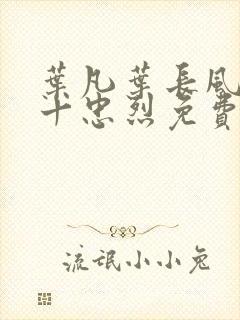 葉凡葉長風
十忠烈免費
流氓小小兔